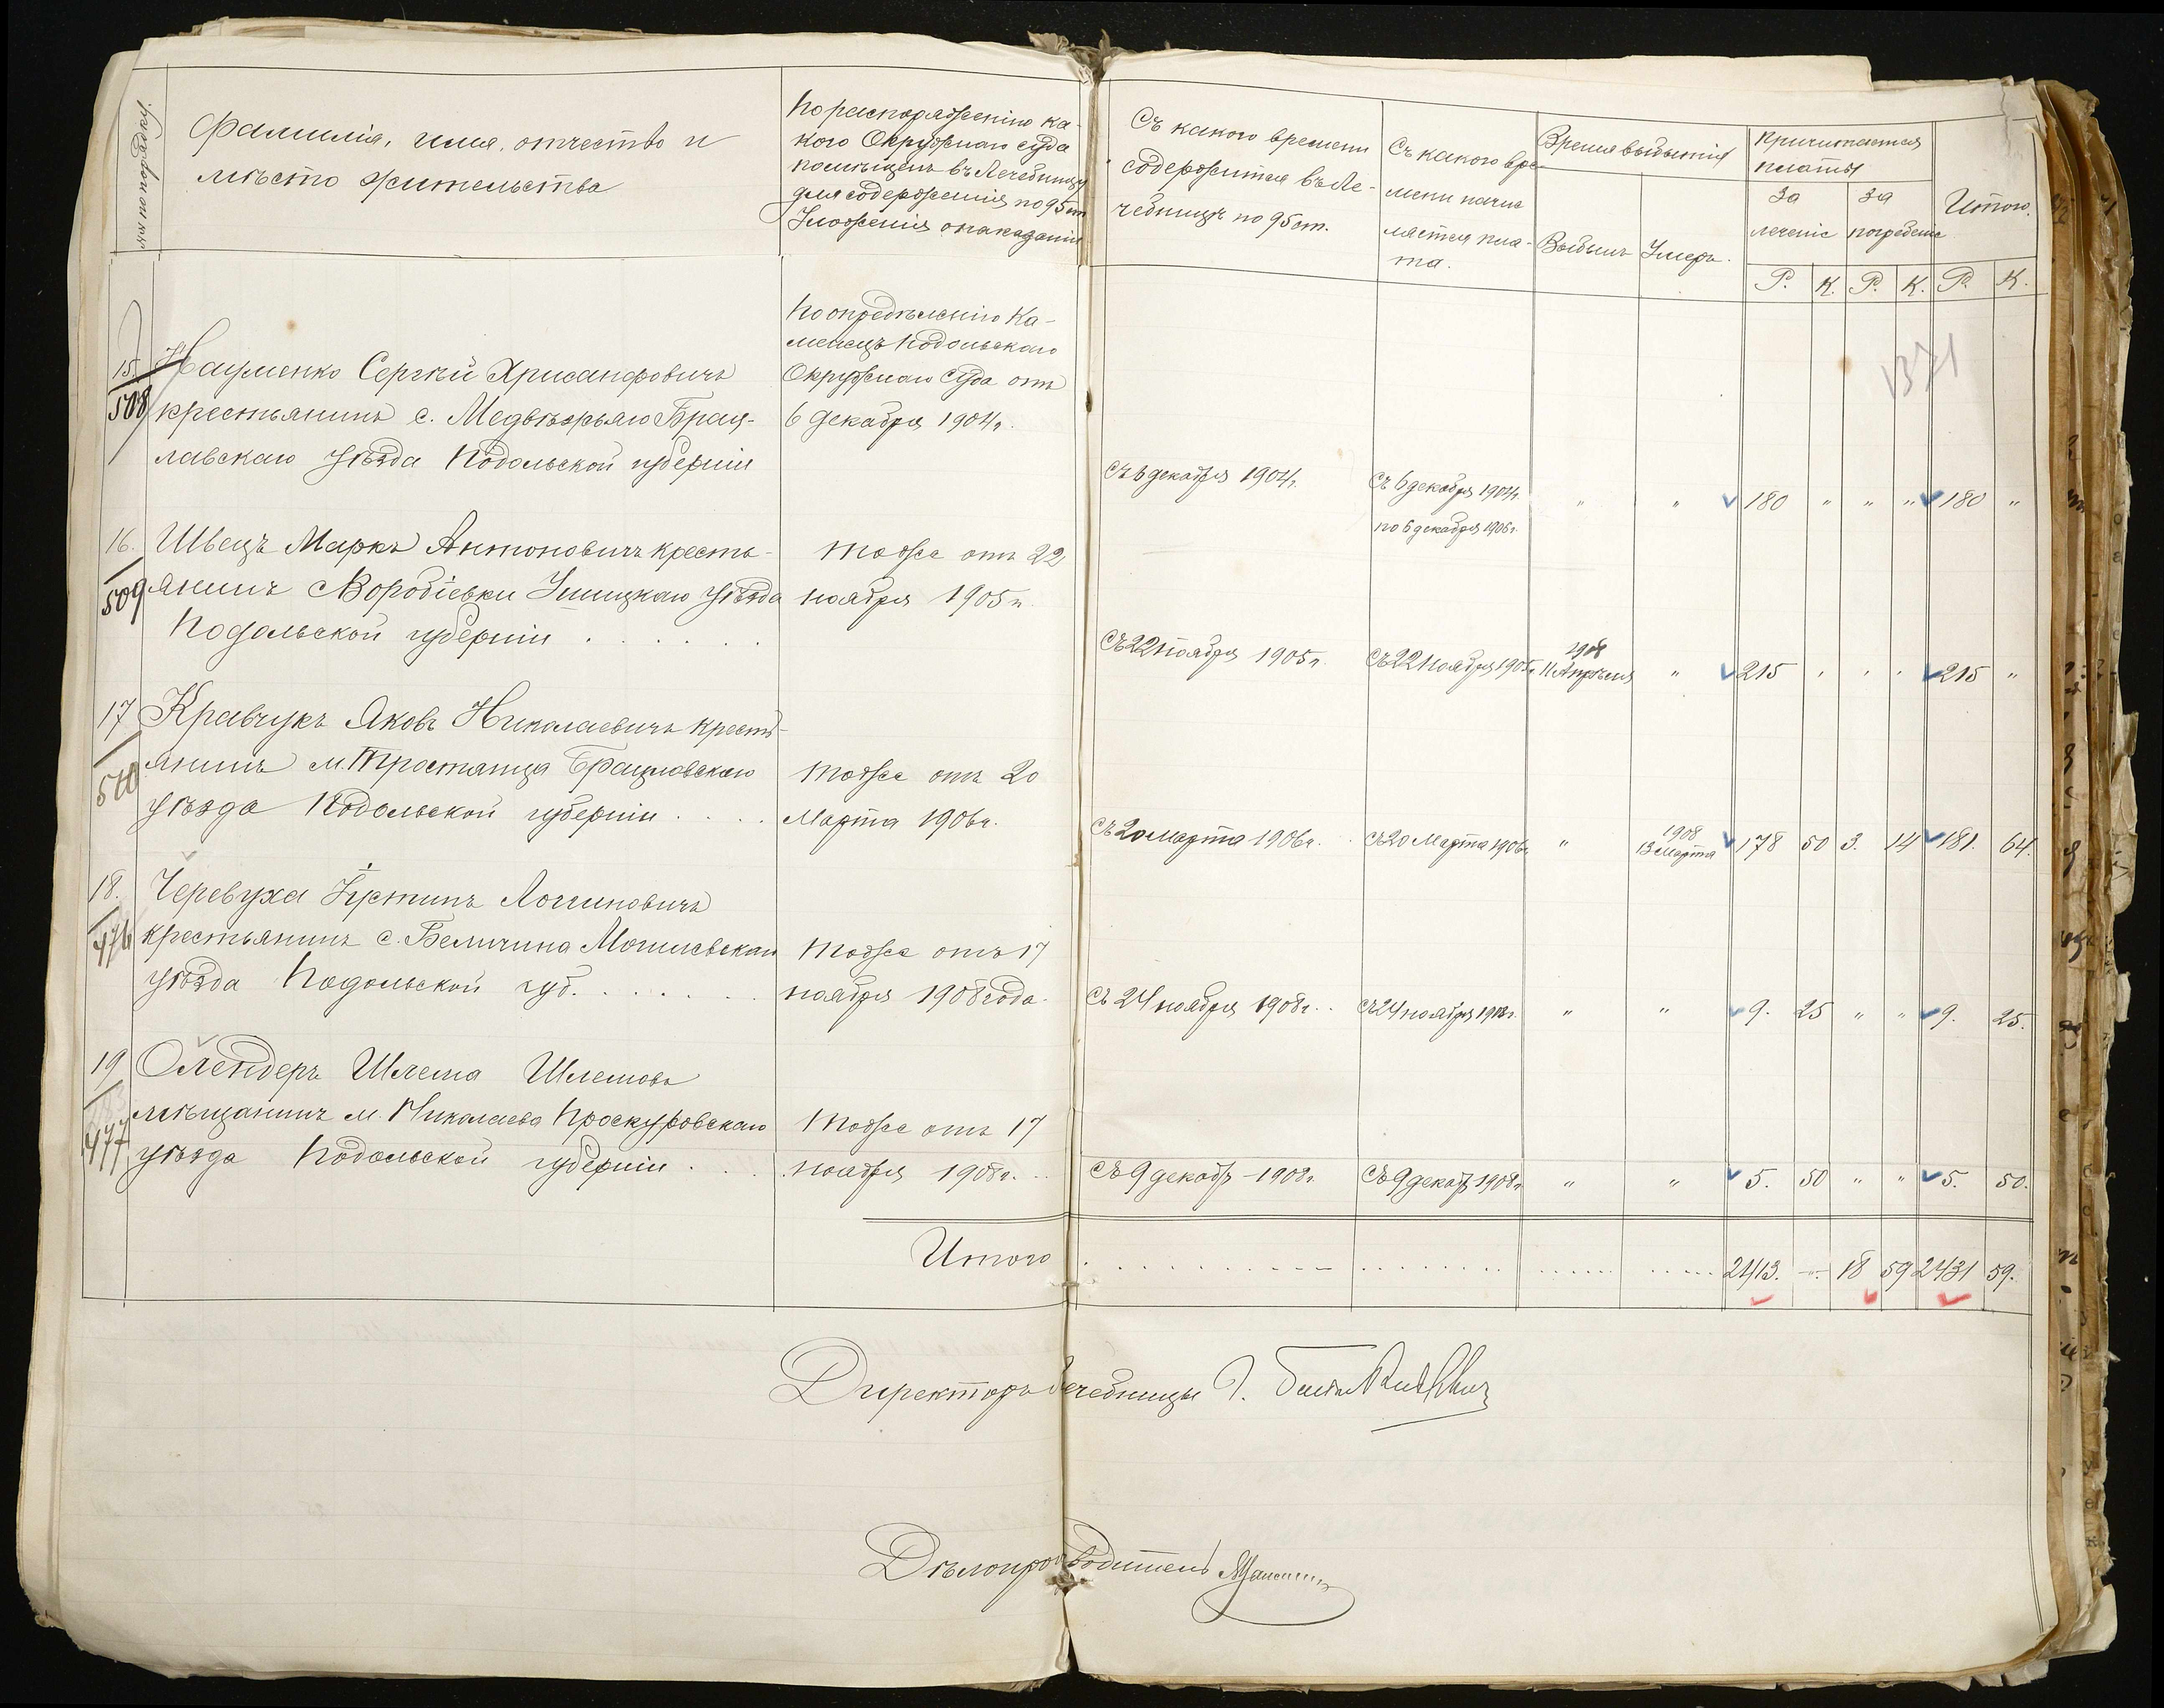 № по порядку
Фамилія, имя, отчество и
мѣсто жительства
По распоряженію ка-
кого Окружнаго суда
помѣщенъ въ Лечебницу
для содержанія по 95 ст
Уложенія о наказаніи
Съ какого времени
содержится въ Ле-
чебницѣ по 95 ст.
Съ какого вре-
мени начис
ляется пла-
та.
Время выбытія
Выбылъ
Умеръ.
Причитается
платы
За
леченіе
За
погребеніе
Итого.
Р. К. Р. К. Р. К.
1371
15.
508
Науменко Сергѣй Хрисанфовичъ
крестьянинъ с. Медвѣжьяго Брац-
лавскаго уѣзда Подольской губерніи
По опредѣленію Ка-
менецъ Подольскаго
Окружнаго суда отъ
6 декабря 1904 г.
Съ 6 декабря 1904 г.
Съ 6 декабря 1904 г.
по 6 декабря 1906 г.
" " 180 " " " 180 "
16.
509
Швецъ Маркъ Антоновичъ кресть-
янинъ с Воробіевки Ушицкаго уѣзда
Подольской губерніи . . . . .
Тоже отъ 22
ноября 1905 г.
Съ 22 ноября 1905 г.
Съ 22 ноября 1905 г.
1908
11 Апрѣля
" 215 " " " 215 "
17
510
Кравчукъ Яковъ Николаевичъ кресть-
янинъ м. Тростянца Брацлавскаго
уѣзда Подольской губерніи . . . .
Тоже отъ 20
Марта 1906 г.
Съ 20 марта 1906 г.
Съ 20 Марта 1906 г.
"
1908
13 Марта
178 50 3. 14 181. 64.
18.
476
Черевуха Іустинъ Логиновичъ
крестьянинъ с. Беличина Могилевскаго
уѣзда Подольской губ. . . . . . .
Тоже отъ 17
ноября 1908 года.
Съ 24 ноября 1908 г. . .
Съ 24 ноября 1908 г.
" " 9. 25 " " 9. 25.
19
477
Олендеръ Шлема Шлемовъ
мѣщанинъ м. Николаева Проскуровскаго
уѣзда Подольской губерніи . . .
Тоже отъ 17
ноября 1908 г. . .
Съ 9 декабр 1908 г.
Съ 9 декабр 1908 г
" " 5. 50 " " 5. 50.
Итого . . . . . . . . 2413. — 18 59 2431 59.
Директоръ Лечебницы
Дѣлопроизводитель